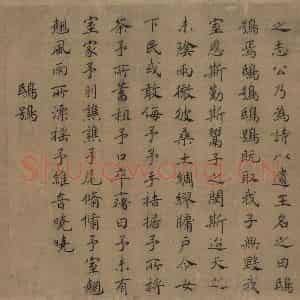 之志公乃為詩以遺王名之曰鴟
鴞焉鴟鴞鴟鴞既取我子無毀我
室恩斯勤斯鬻子之閔斯迨天之
未陰雨徹彼桑土綢繆牖戶今女
下民或敢侮予予手拮据予所捋
荼予所蓄租予口卒瘏曰予未有
室家予羽譙譙予尾翛翛予室翹
翹風雨所漂搖予維音嘵嘵
鴟鴞
Shufawang.CN